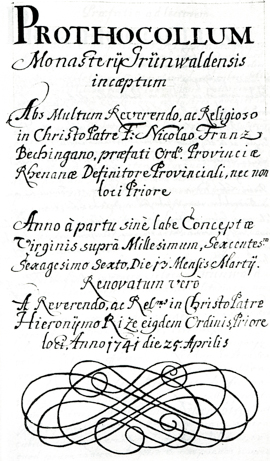 PROTHOCOLLUM
Monasterij Grünwaldensis
incæptum
Abs Multum Reverendo, ac Religioso
in Christo Patre F: Nicolao Franz
Bechingano, præfati Ord. Provinciæ
Rhenanæ Definitore Provinciali, nec non
loci Priore
Anno à partu sinè labe Conceptæ
Virginis suprà Millesimum, Sexcentesm
Sexagesimo Sexto, Die 17. Mensis Martij.
Renovatum verò
A Reverendo, ac Relmo in Christo Patre
Hieronijmo Rize eiqdem Ordinis, Priore
loci, Anno 1741 die 25. Aprilis